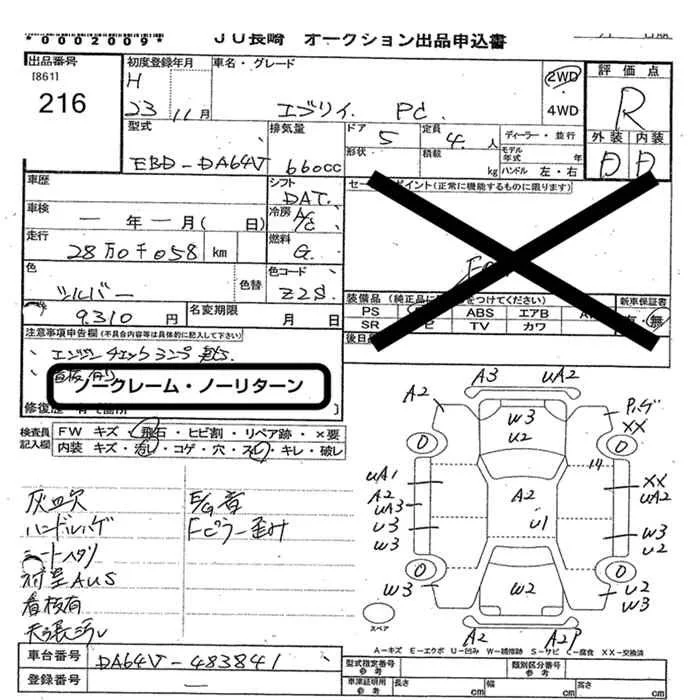 *0002009*
JU長崎 オークション出品申込書
出品番号
[861]
216
初度登録年月
H
23 11月
車名・グレード
エブリィ. PC.
2WD
4WD
評価点
R
外装 内装
D D
型式
EBD-DA64V
排気量
660cc
ドア
5
定員
4. 人
形状
積載
kg
ディーラー・並行
モデル
年式 年
ハンドル 左・右
車歴
シフト
DAT.
車検
一年一月( 日)
冷房
A/C
走行
28万0千058 km
燃料
G.
色
シルバー
色替
色コード
Z2S.
9310 円
名変期限
月 日
ポイント (正常に機能するものに限ります)
装備品
PS
ABS エアB
SR
TV カワ
新車保証書
無
注意事項申告欄 (不具合内容等は具体的に記入して下さい)
エンジンチェックランプ
ノークレーム・ノーリターン
検査員
記入欄
FW キズ・飛石・ヒビ割・リペア跡・×要
内装 キズ・汚レ・コゲ・穴・スレ・キレ・破レ
灰皿欠
ハンドルハゲ
シートヘタリ
看板有
天張汚レ
E/G音
Fピラー歪み
A3 uA2
A2
W3
U2
ハゲ
XX
uA1
A2
uA3
U3
W3
A2
U1
XX
uA2
W3
U2
W3
W2
U2
W3
A2
A2P
スペア
A-キズ E-エクボ U-凹み W-補修跡 S-サビ C-腐食 XX-交換済
車台番号
DA64V-483841
登録番号
型式指定番号
参考
類別区分番号
参考
車庫証明用
参考
長さ
cm
幅
cm
高さ
cm